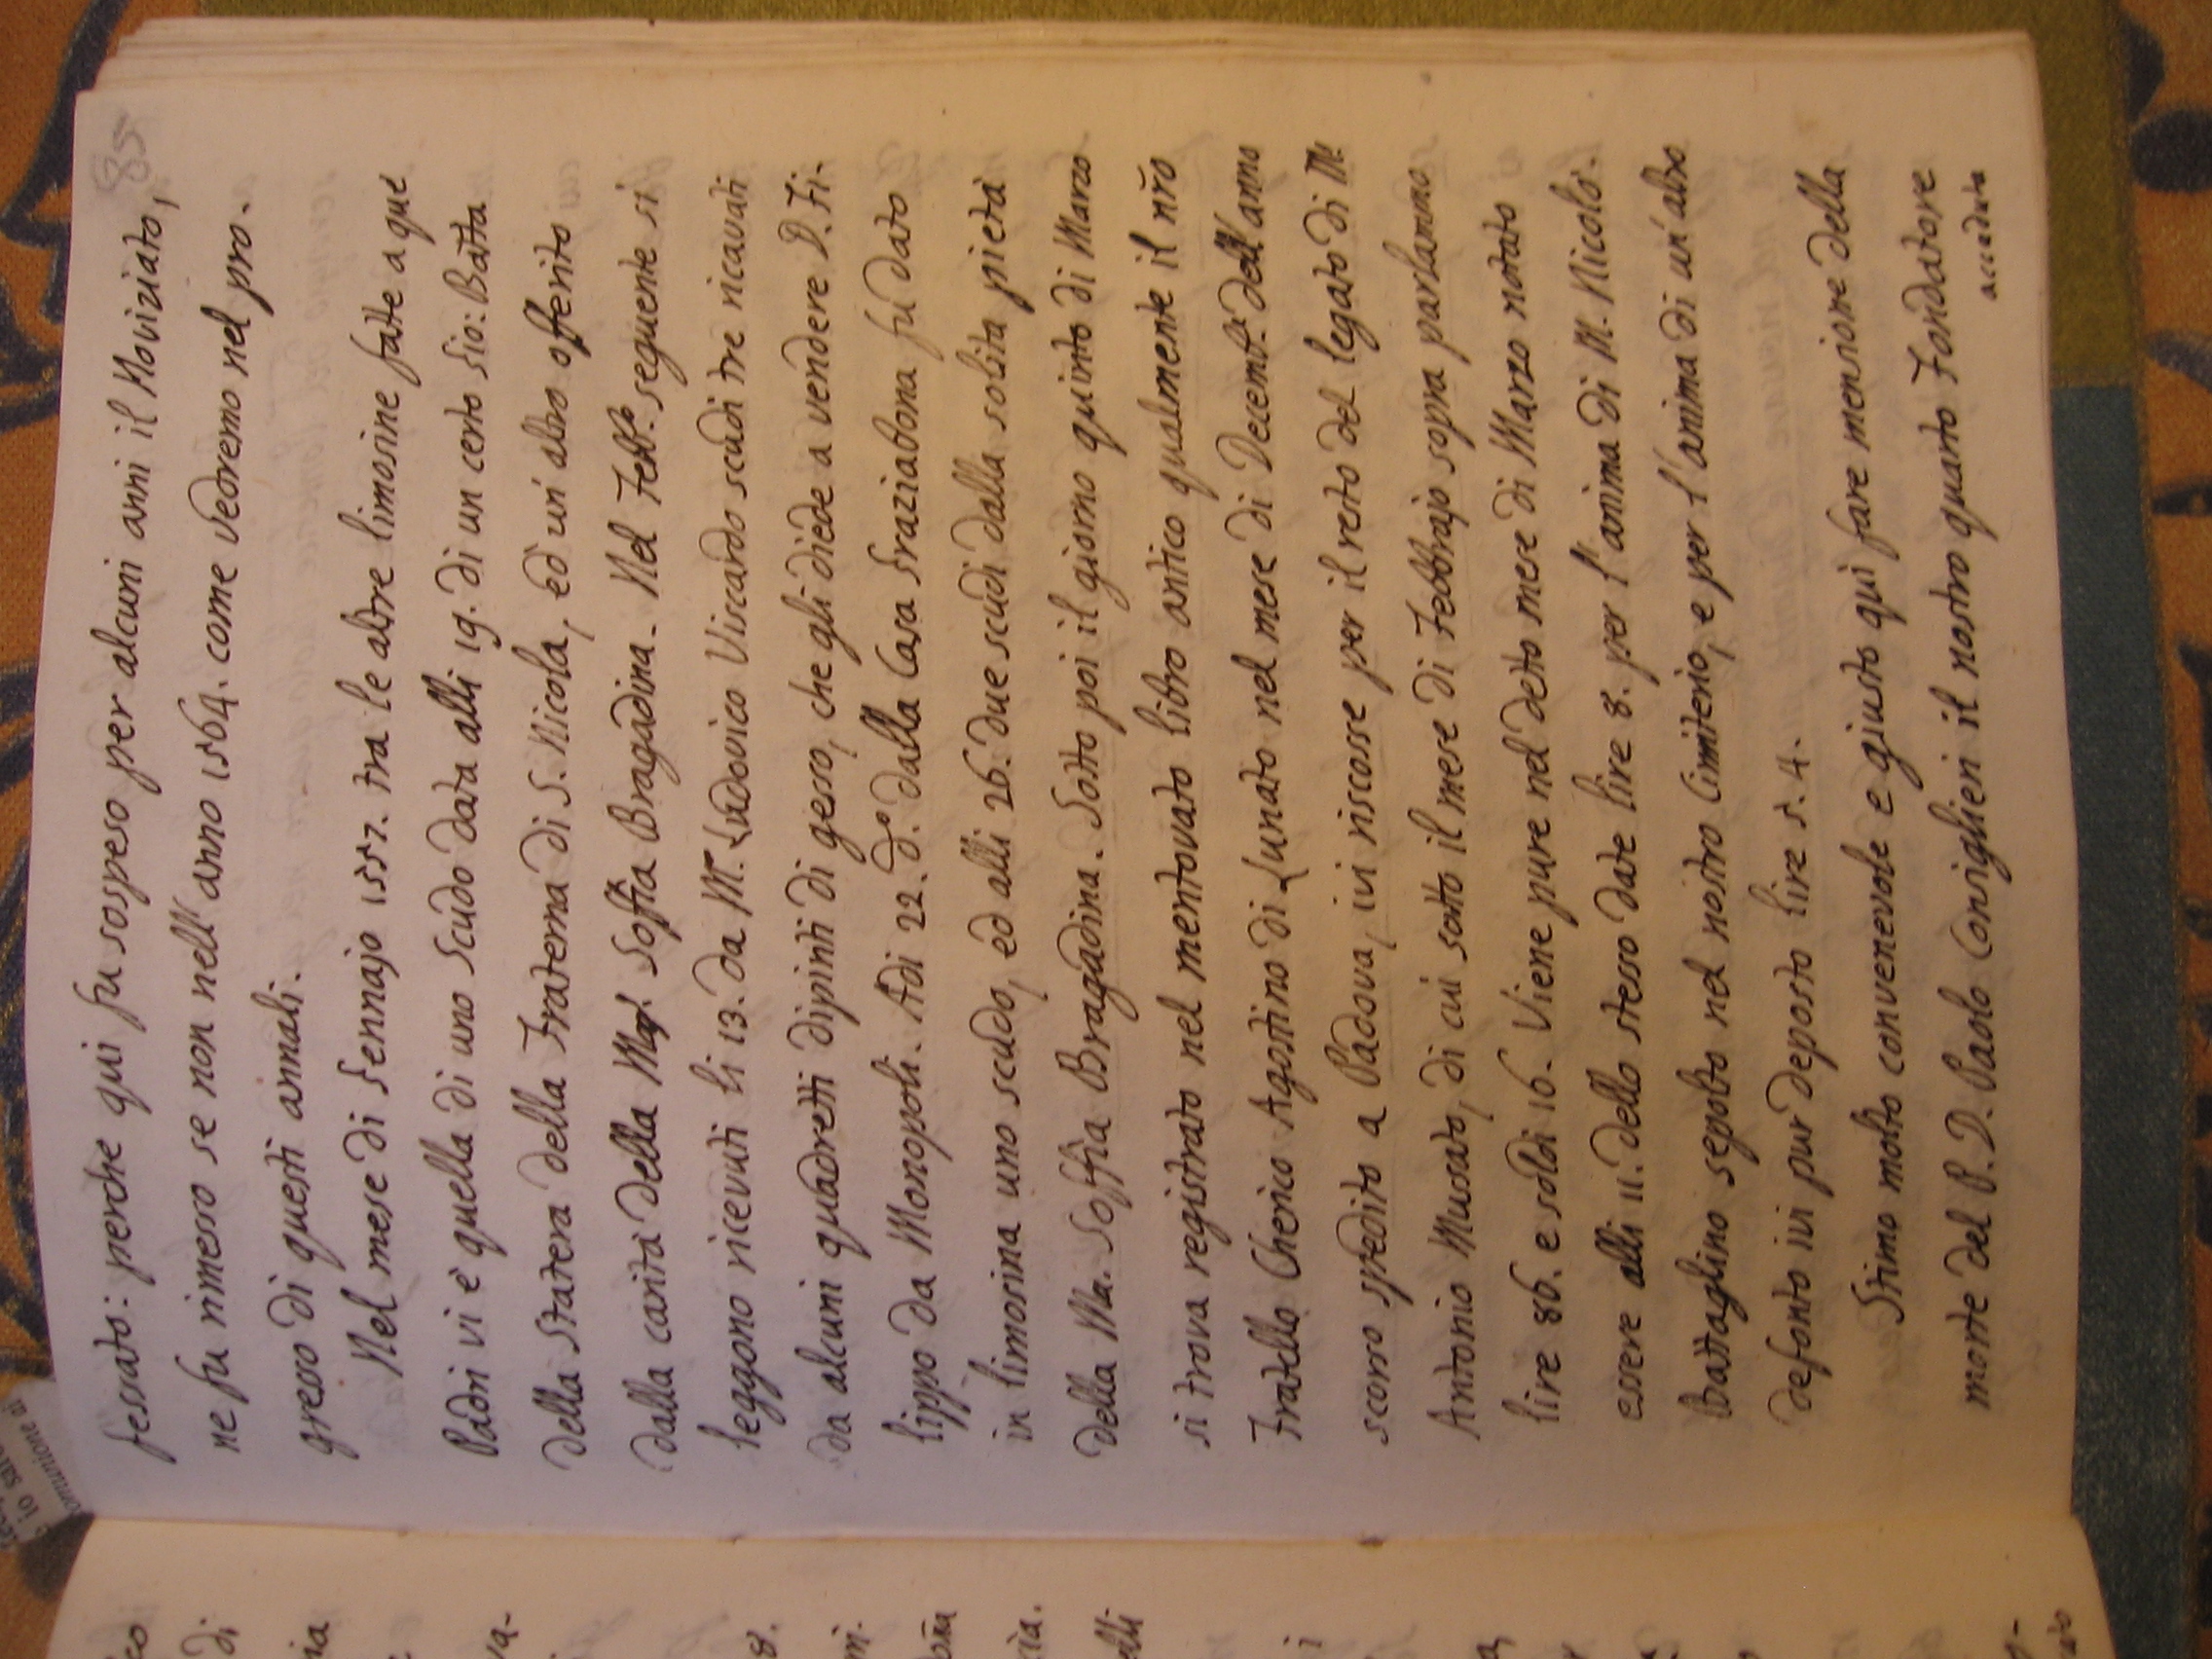 85
fessato: perche qui fu sospeso per alcuni anni il Noviziato,
ne fu rimesso se non nell'anno 1564. come vedremo nel pro-
gresso di questi annali.
Nel mese di Gennajo 1557. tra le altre limosine fatte a que'
Padri vi è quella di uno scudo data alli 19. di un certo Gio: Batta
della Statera della Fraterna di S. Nicola, ed un' altro offerito
dalla carità della Mag. Soffia Bragadina. Nel Febb.º seguente si
leggono ricevuti li 13. da Mr. Ludovico Viscardo scudi tre ricavati
da alcuni quadretti dipinti di gesso, che gli diede a vendere D. Fi-
lippo da Monopoli. Adi 22. dº. dalla Casa Graziabona fu dato
in limosina uno scudo, ed alli 26. due scudi dalla solita pietà
della Ma. Soffia Bragadina. Sotto poi il giorno quinto di Marzo
si trova registrato nel mentovato libro antico qualmente il nro
Fratello Cherico Agostino di Lunato nel mese di Decemb. dell'anno
scorso spedito a Padova, ivi riscosse per il resto del legato di M.
Antonio Musato, di cui sotto il mese di Febbrajo sopra parlammo
lire 86. e soldi 16. Viene pure nel detto mese di Marzo notato
essere alli 11. dello stesso date lire 8. per l'anima di M. Nicolò
Battaglino sepolto nel nostro Cimiterio, e per l'anima di un' altro
defonto ivi pur deposto lire 5. 4.
Stimo molto convenevole e giusto qui fare menzione della
morte del P. D. Paolo Consiglieri il nostro quarto Fondatore
accaduta
io sarò
comunione di
eco
di
ia
va-
8.
ni-
oña
cia.
elli
i